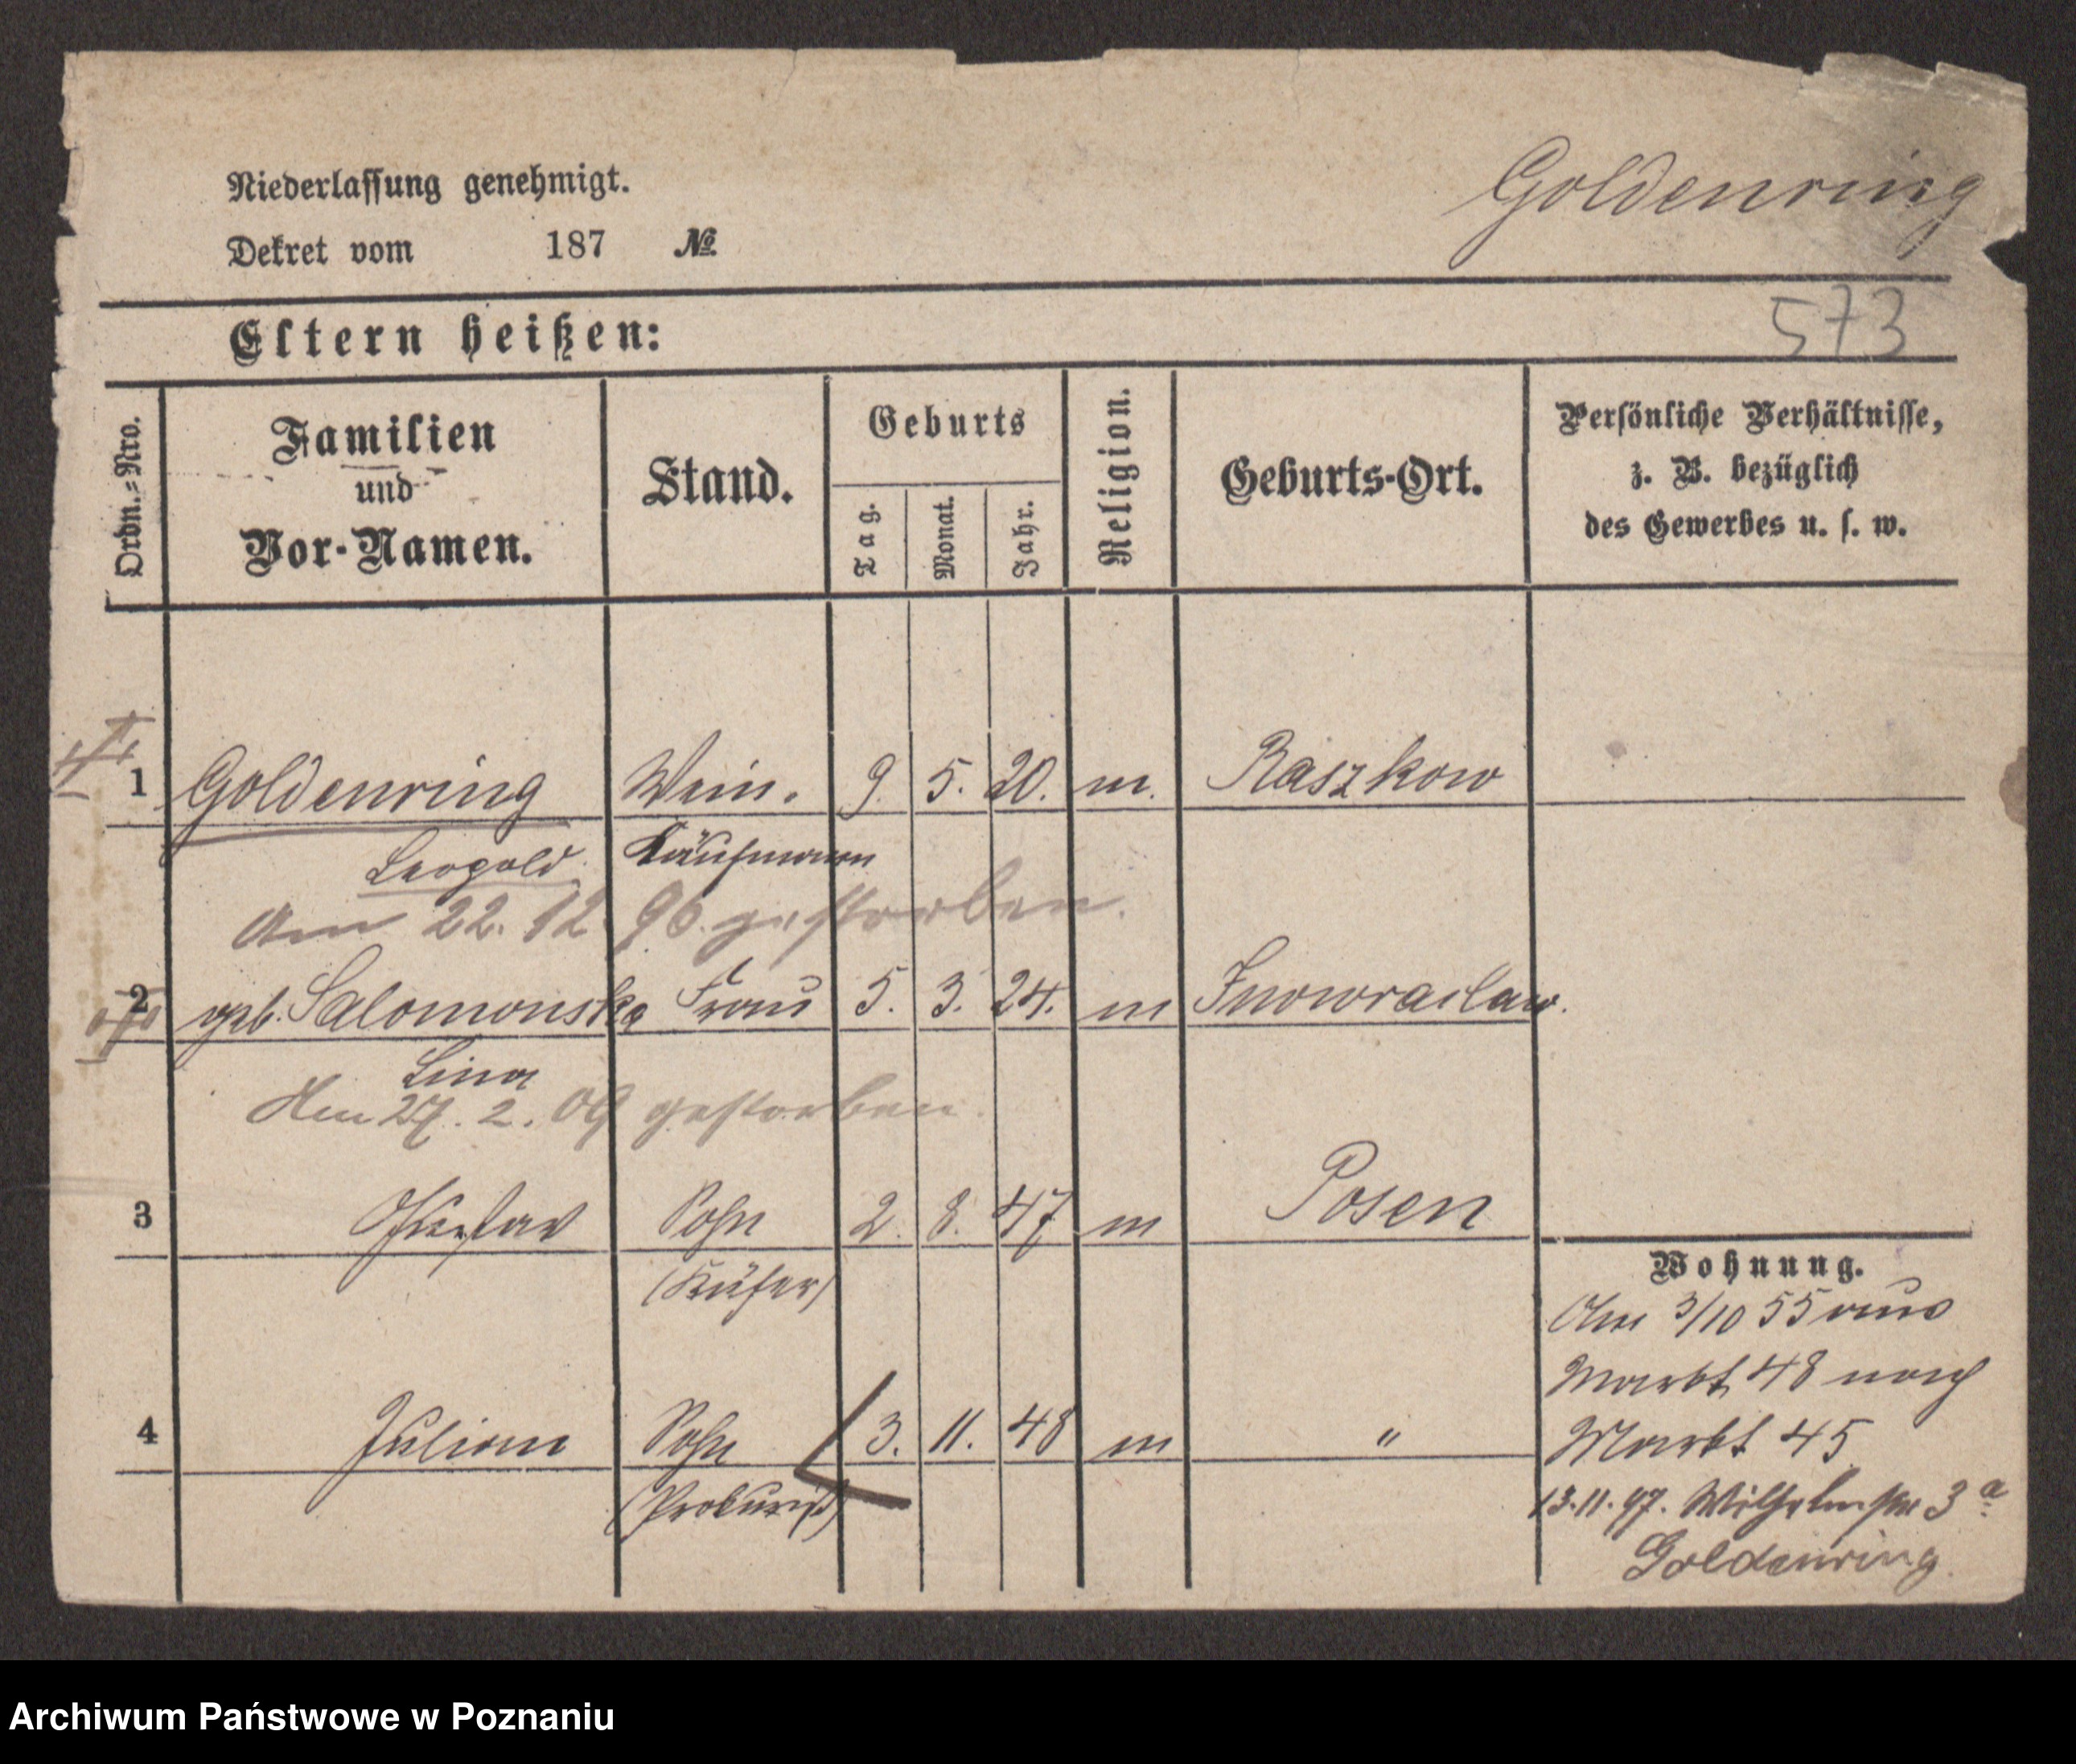 Niederlassung genehmigt.
Goldenring
Dekret vom 187 №
Eltern heißen:
573
Ordn.=Nro.
Familien und Vor-Namen.
Stand.
Geburts
Tag. Monat. Jahr.
Religion.
Geburts-Ort.
Persönliche Verhältnisse,
z. B. bezüglich
des Gewerbes u. s. w.
1 Goldenring Wein. 9. 5. 20. m. Raszkow
Leopold Kaufmann
Am 22. 12 96. gestorben.
2 geb. Salomonska Frau 5. 3. 24. m Inowraclaw.
Lina
Am 27. 2. 09 gestorben.
3 Gustav Sohn 2. 8. 47 m Posen
(Küfer)
4 Julian Sohn 3. 11. 48 m "
(Prokurist)
Wohnung.
Am 3/10 55 aus
Markt 48 nach
Markt 45
13.11.97. Wilhelmstr 3 a
Goldenring
Archiwum Państwowe w Poznaniu